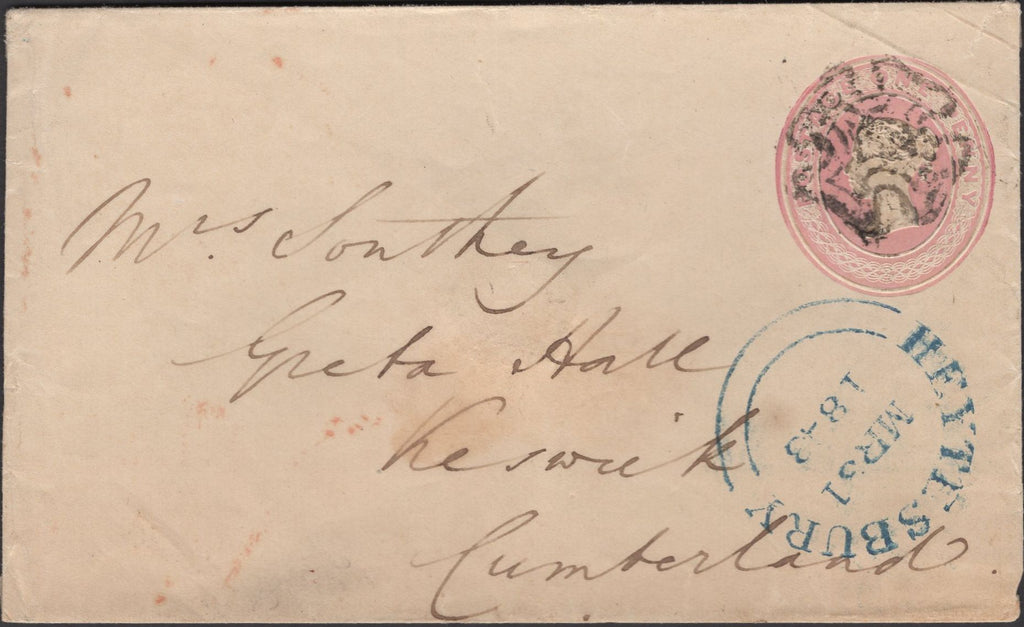 POSTAGE ONE PENNY
Mrs. Southey
Greta Hall
Keswick
Cumberland.
HEYTESBURY
MR 31
1843